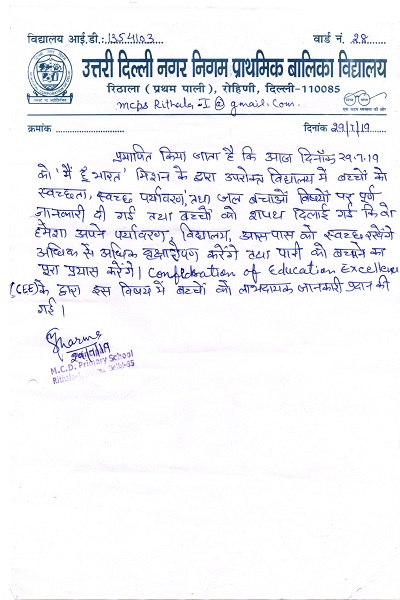 विद्यालय आई.डी.: 1354103 वार्ड नं. 28
उत्तरी दिल्ली नगर निगम प्राथमिक बालिका विद्यालय
रिठाला (प्रथम पाली), रोहिणी, दिल्ली-110085
mcps Rithala-I@gmail.com.
क्रमांक दिनांक 29/7/19
प्रमाणित किया जाता है कि आज दिनाँक 29.7.19
को 'मैं हूँ भारत' मिशन के द्वारा उपरोक्त विद्यालय में बच्चों को
स्वच्छता, स्वच्छ पर्यावरण, तथा जल बचाओ विषयों पर पूर्ण
जानकारी दी गई तथा बच्चों को शपथ दिलाई गई कि वो
हमेशा अपने पर्यावरण, विद्यालय, आसपास को स्वच्छ रखेंगे
अधिक से अधिक वृक्षारोपण करेंगे तथा पानी को बचाने का
पूरा प्रयास करेंगे। Confederation of Education Excellence
(CEE) के द्वारा इस विषय में बच्चों को लाभदायक जानकारी प्रदान की
गई।
Sharma
29/7/19
M.C.D. Primary School